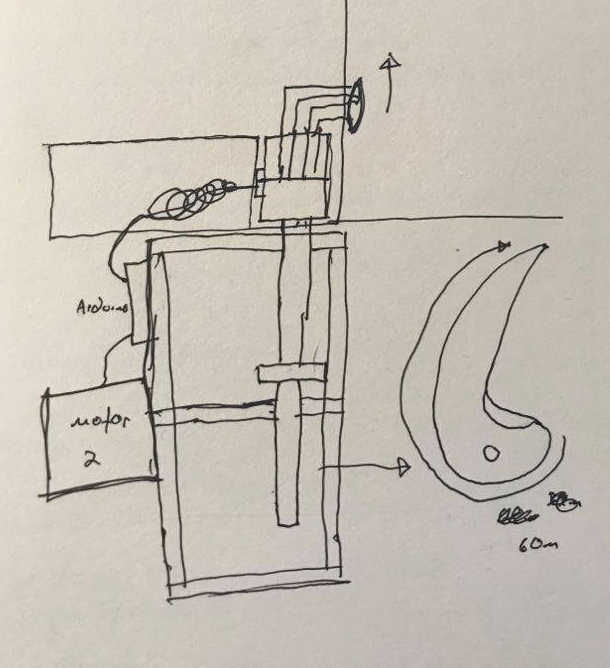 Arduino
motor
2
60m